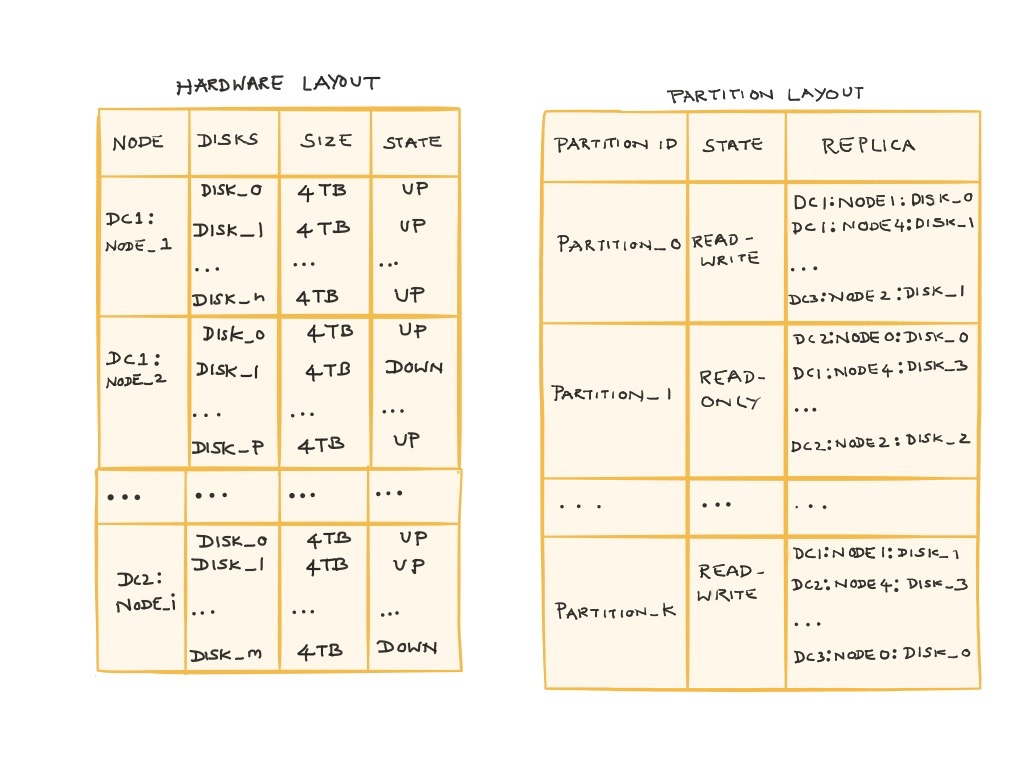 HARDWARE LAYOUT
NODE DISKS SIZE STATE
DC1: NODE_1
DISK_0 4TB UP
DISK_1 4TB UP
... ... ...
DISK_n 4TB UP
DC1: NODE_2
DISK_0 4TB UP
DISK_1 4TB DOWN
... ... ...
DISK_P 4TB UP
... ... ... ...
DC2: NODE_i
DISK_0 4TB UP
DISK_1 4TB UP
... ... ...
DISK_m 4TB DOWN
PARTITION LAYOUT
PARTITION ID STATE REPLICA
PARTITION_0
READ-
WRITE
DC1:NODE1:DISK_0
DC1:NODE4:DISK_1
...
DC3:NODE2:DISK_1
PARTITION_1
READ-
ONLY
DC2:NODE0:DISK_0
DC1:NODE4:DISK_3
...
DC2:NODE2:DISK_2
... ... ...
PARTITION_K
READ-
WRITE
DC1:NODE1:DISK_1
DC2:NODE4:DISK_3
...
DC3:NODE0:DISK_0